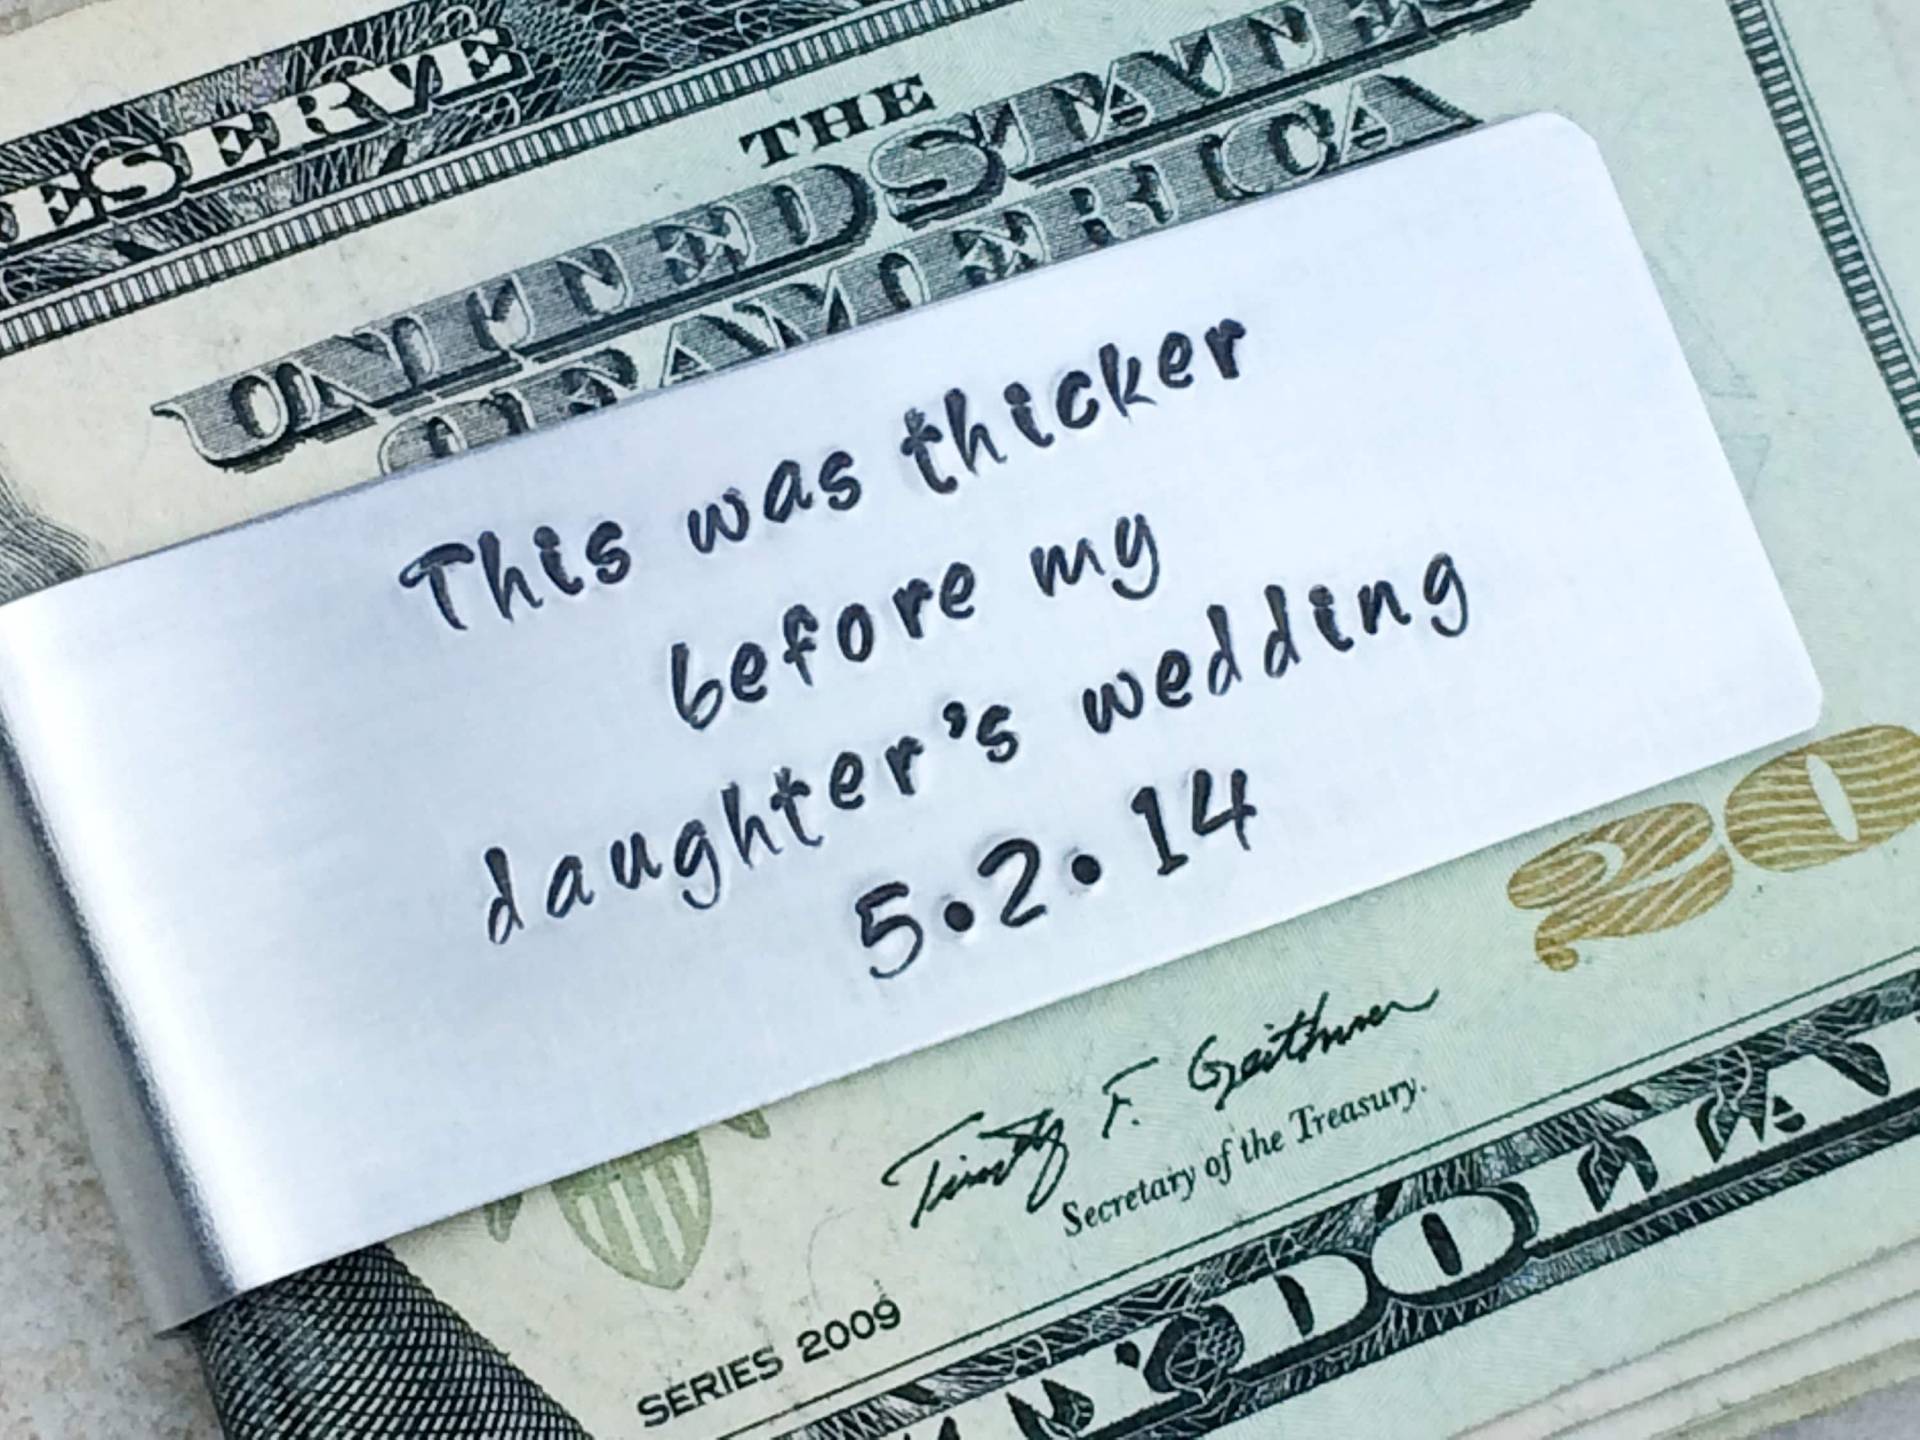 ESERVE
THE
UNITED STATES
OF AMERICA
This was thicker
before my
daughter's wedding
5•2•14
20
Timothy F. Geithner
Secretary of the Treasury.
SERIES 2009